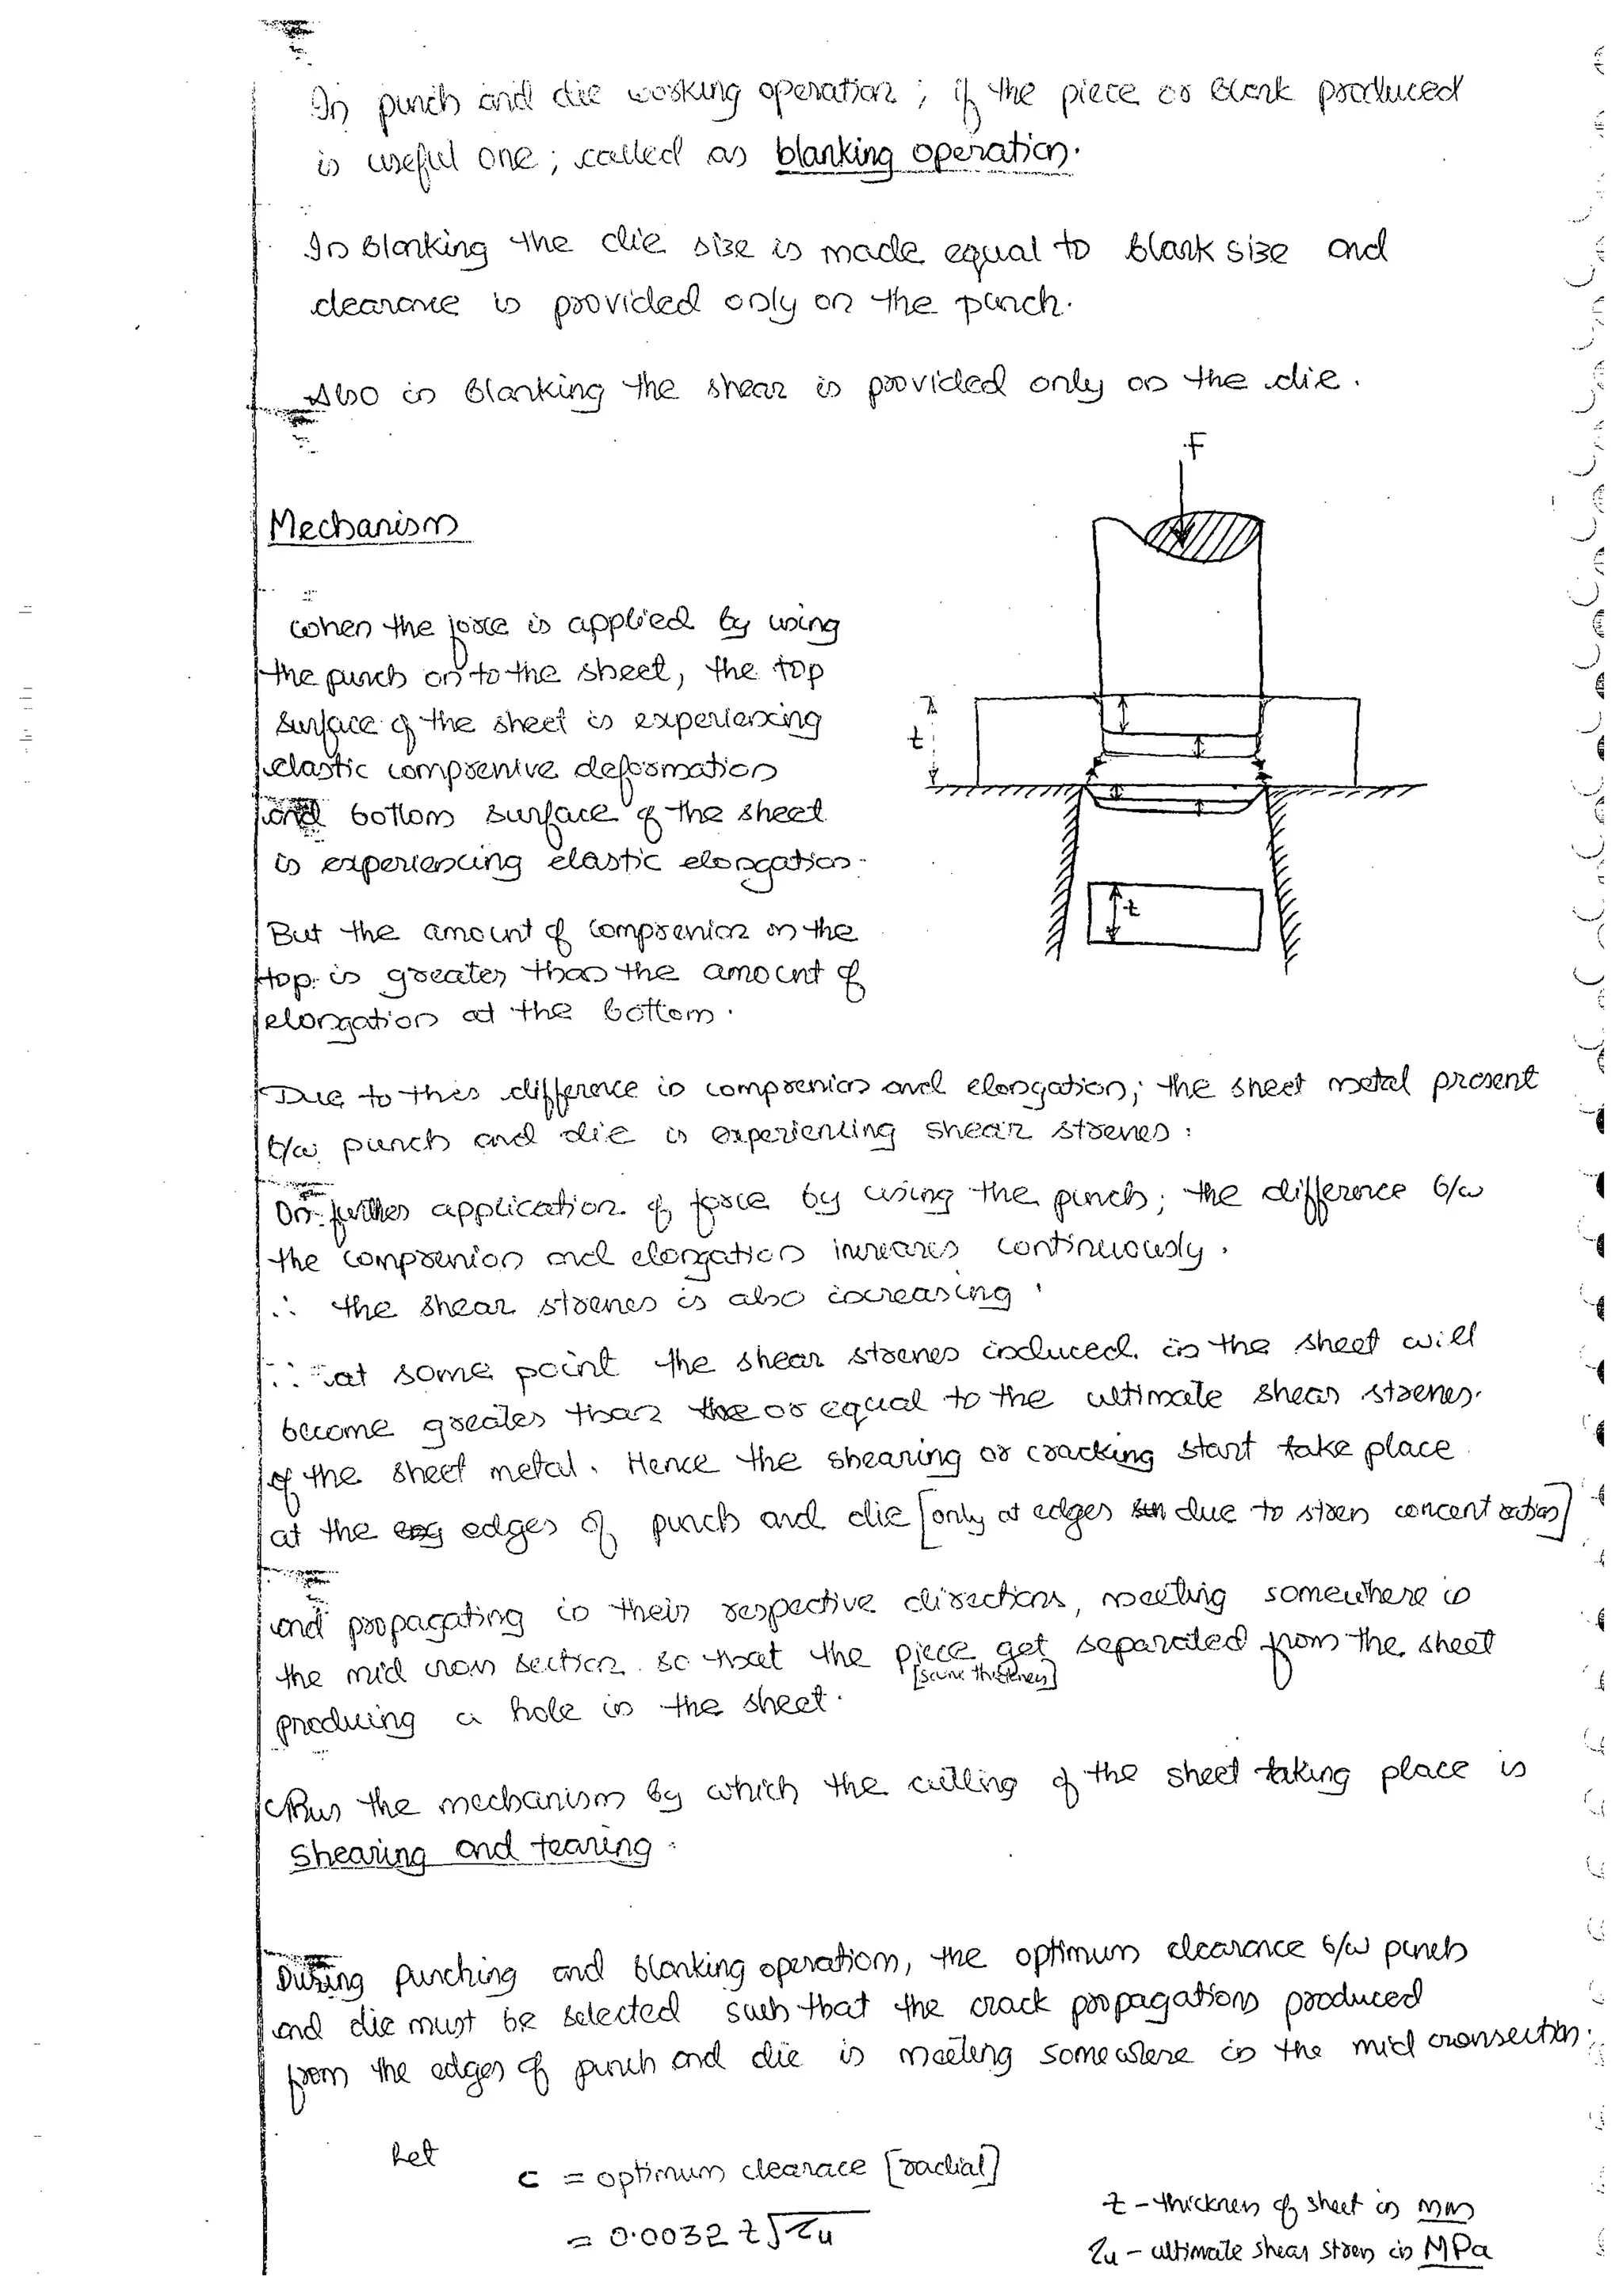 In punch and die working operation ; if the piece or blank produced
is useful one ; called as blanking operation.
In blanking the die size is made equal to blank size and
clearance is provided only on the punch.
Also in blanking the shear is provided only on the die.
F
Mechanism
when the force is applied by using
the punch on to the sheet, the top
surface of the sheet is experiencing
elastic compressive deformation
and bottom surface of the sheet
is experiencing elastic elongation.
But the amount of compression on the
top is greater than the amount of
elongation at the bottom.
t
t
Due to this difference in compression and elongation; the sheet metal present
b/w punch and die is experiencing shear stresses.
On further application of force by using the punch; the difference b/w
the compression and elongation increases continuously.
∴ the shear stresses is also increasing.
∴ at some point the shear stresses induced in the sheet will
become greater than the or equal to the ultimate shear stresses.
of the sheet metal. Hence the shearing or cracking start take place
at the edges of punch and die [only at edges due to stress concentration]
and propagating in their respective directions, meeting somewhere in
the mid cross section so that the piece get separated from the sheet
[same thickness]
producing a hole in the sheet.
Thus the mechanism by which the cutting of the sheet taking place is
Shearing and tearing.
During punching and blanking operation, the optimum clearance b/w punch
and die must be selected such that the crack propagations produced
from the edges of punch and die is meeting somewhere in the mid crossection.
Let
c = optimum clearace [radial]
= 0.0032 t√τu
t - thickness of sheet in mm
τu - ultimate shear stress in MPa